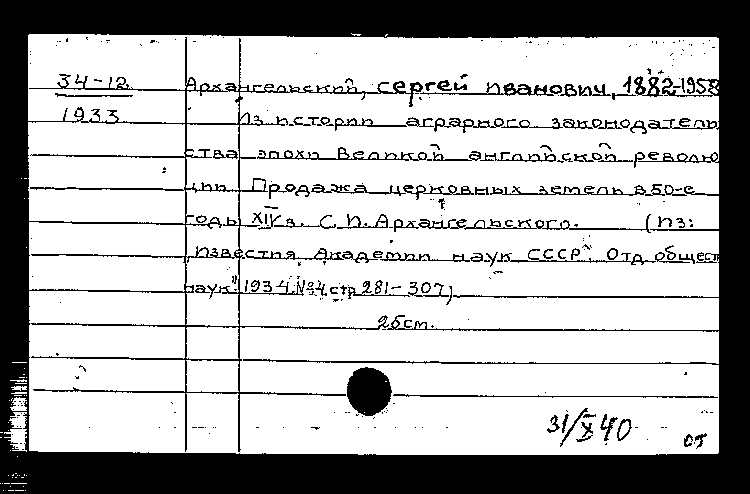 34-12
1933
Архангельский, Сергей Иванович, 1882-1958
Из истории аграрного законодатель
ства эпохи Великой английской револю
ции Продажа церковных земель в 50-е
годы XIV в. С. И. Архангельского. (Из:
„Известия Академии наук СССР". Отд общест
наук" 1934. №4, стр 281-307)
26 cm.
31/X 40